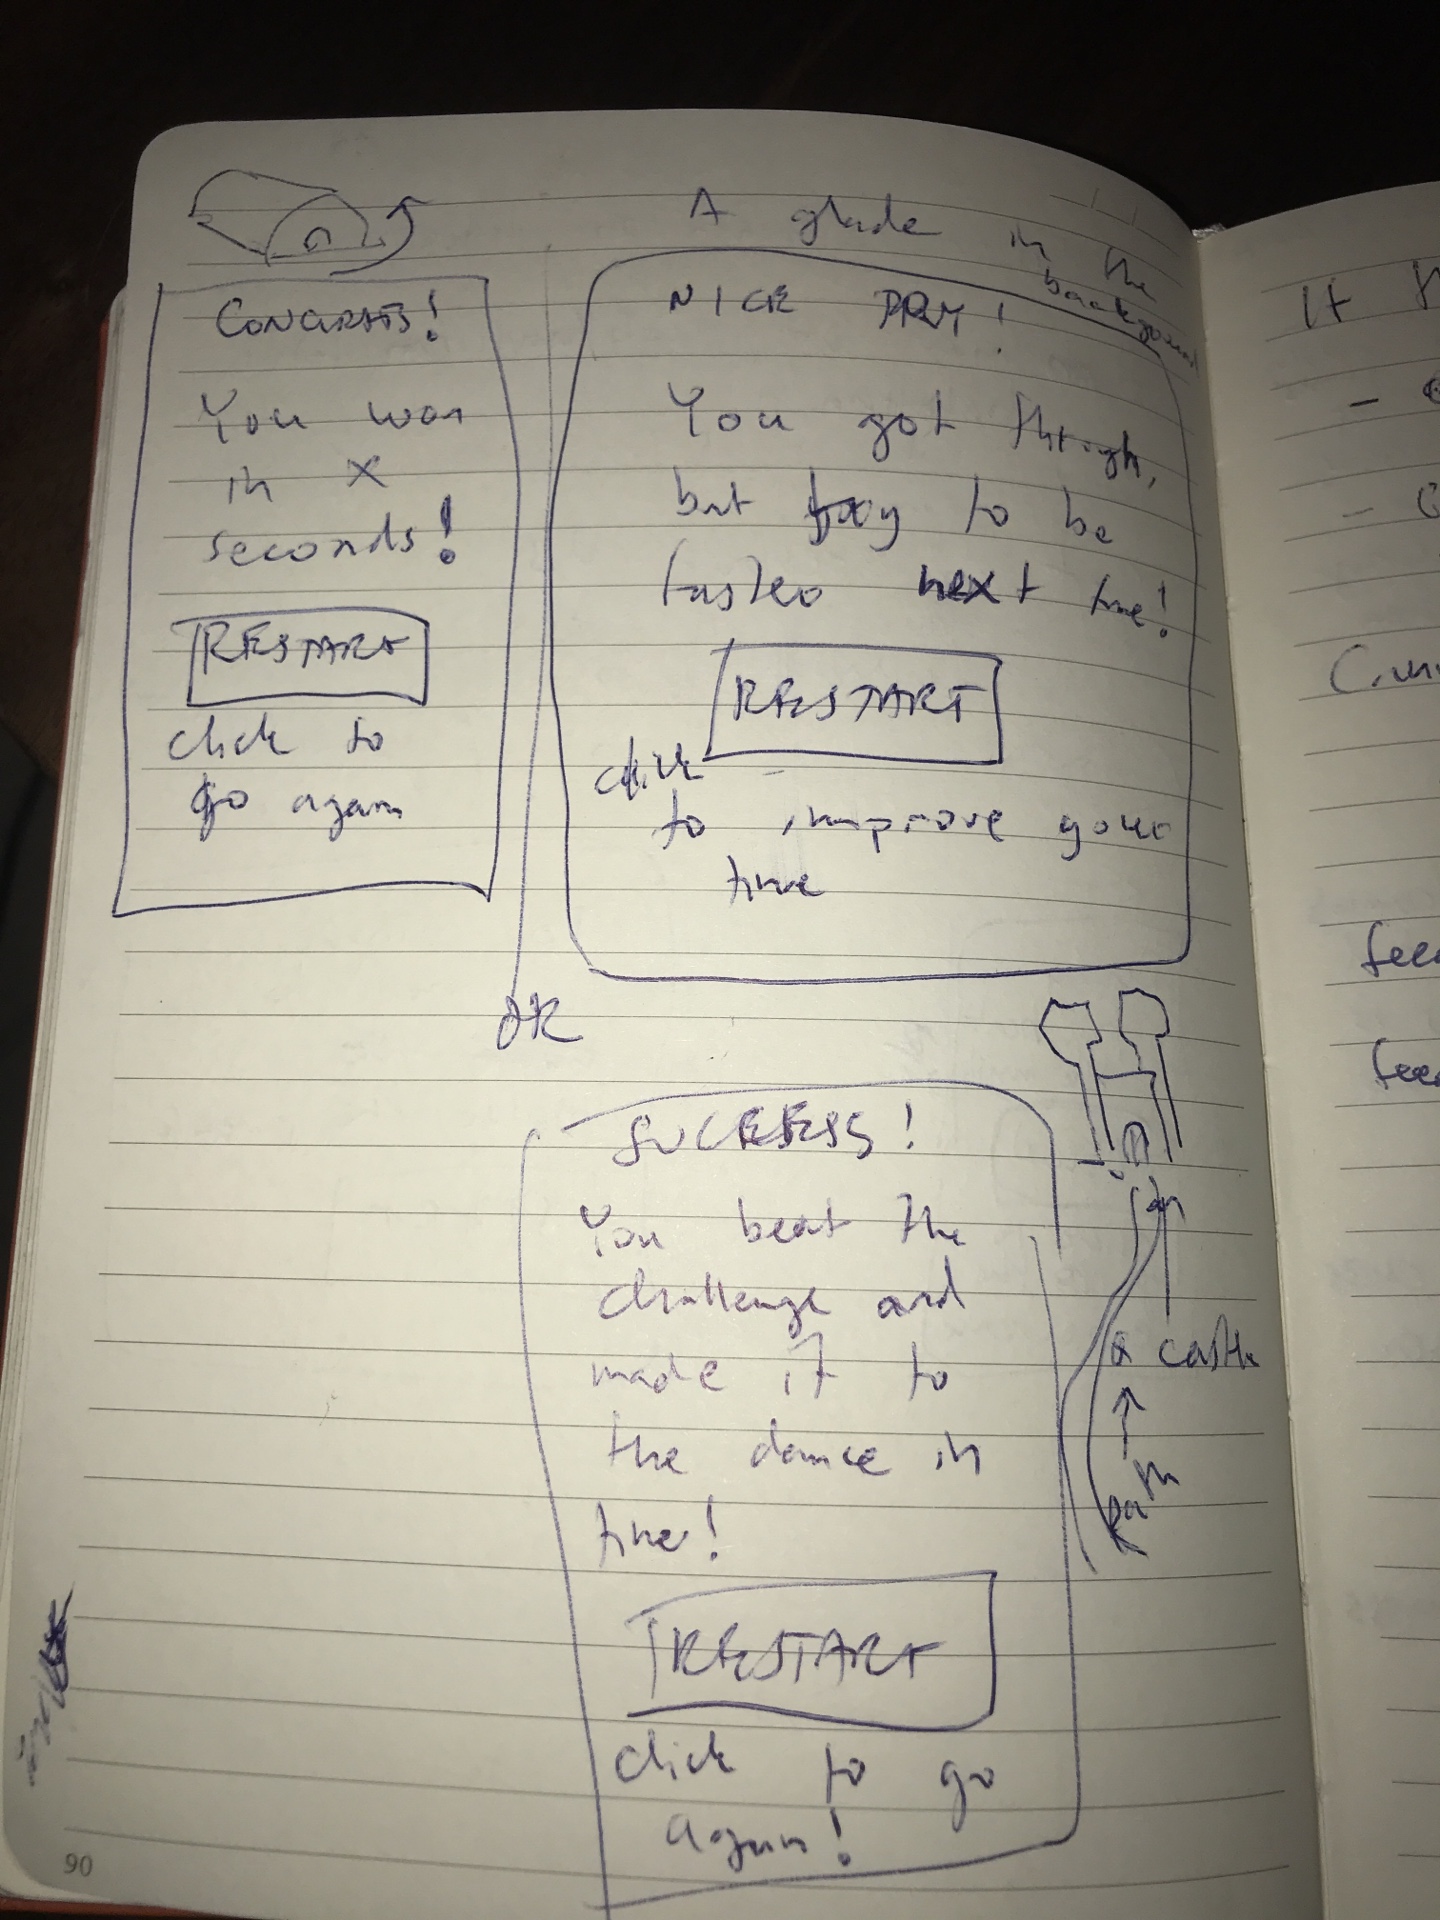 A glade in the
background
CONGRATS!
You won
in X
seconds!
RESTART
click to
go again
NICE TRY!
You got through,
but try to be
faster next time!
RESTART
click
to improve your
time
OR
SUCCESS!
You beat the
challenge and
made it to
the dance in
time!
RESTART
click to go
again!
a castle
Path
90
It
Feed
Feed